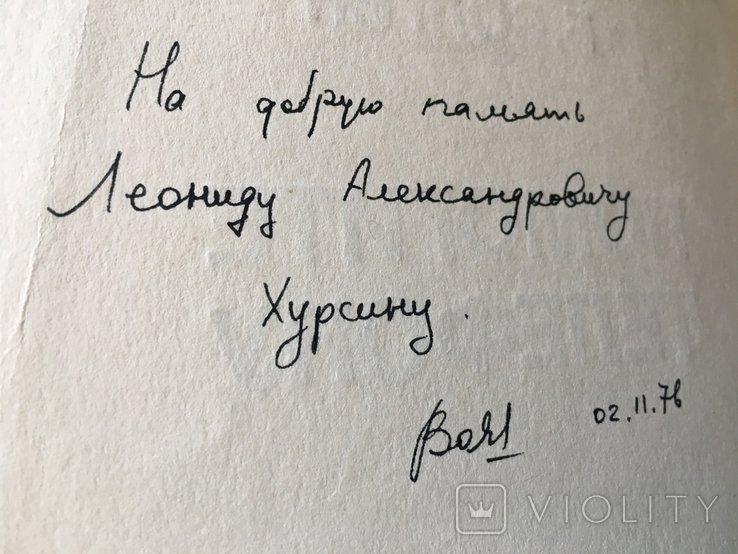 На добрую память
Леониду Александровичу
Хурсину.
02.11.76
VIOLITY